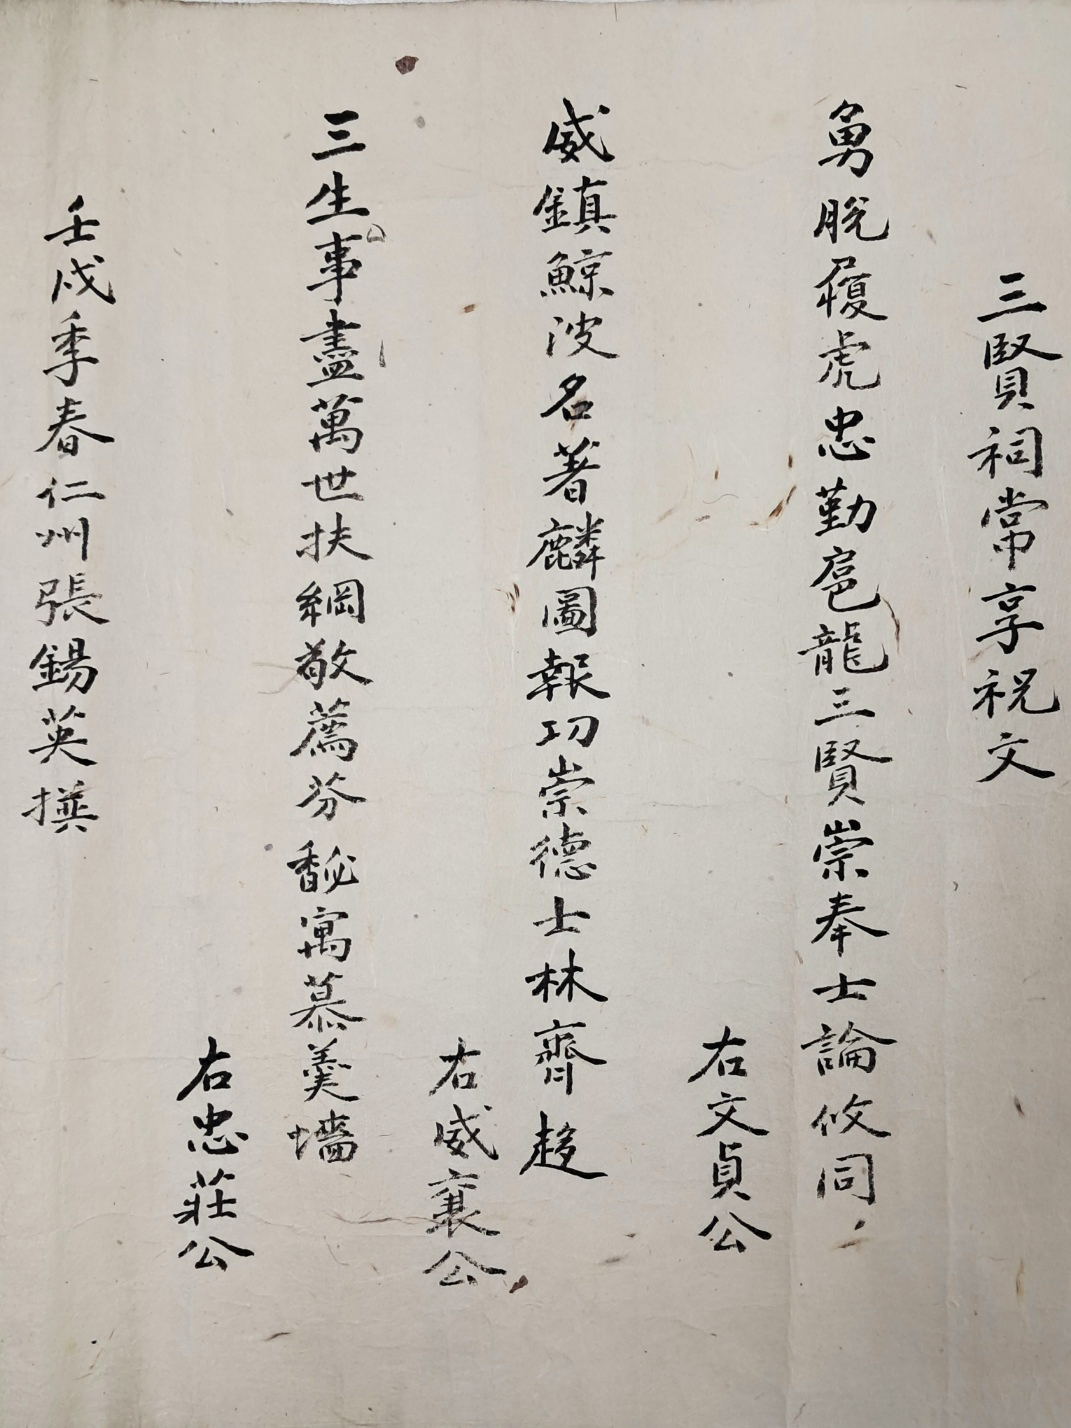 三賢祠常享祝文
勇脫履虎忠勤扈龍三賢崇奉士論攸同
右文貞公
威鎮鯨波名著麟圖報功崇德士林齊趍
右威襄公
三生事盡萬世扶綱敬薦芬馝寓慕羹墻
右忠莊公
壬戌季春仁州張錫英撰